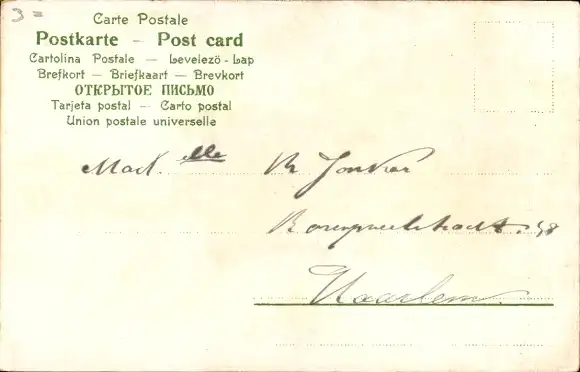 3=
Carte Postale
Postkarte – Post card
Cartolina Postale – Levelezö-Lap
Brefkort – Briefkaart – Brevkort
ОТКРЫТОЕ ПИСЬМО
Tarjeta postal – Carto postal
Union postale universelle
Mad.elle Jonker
58
Haarlem.